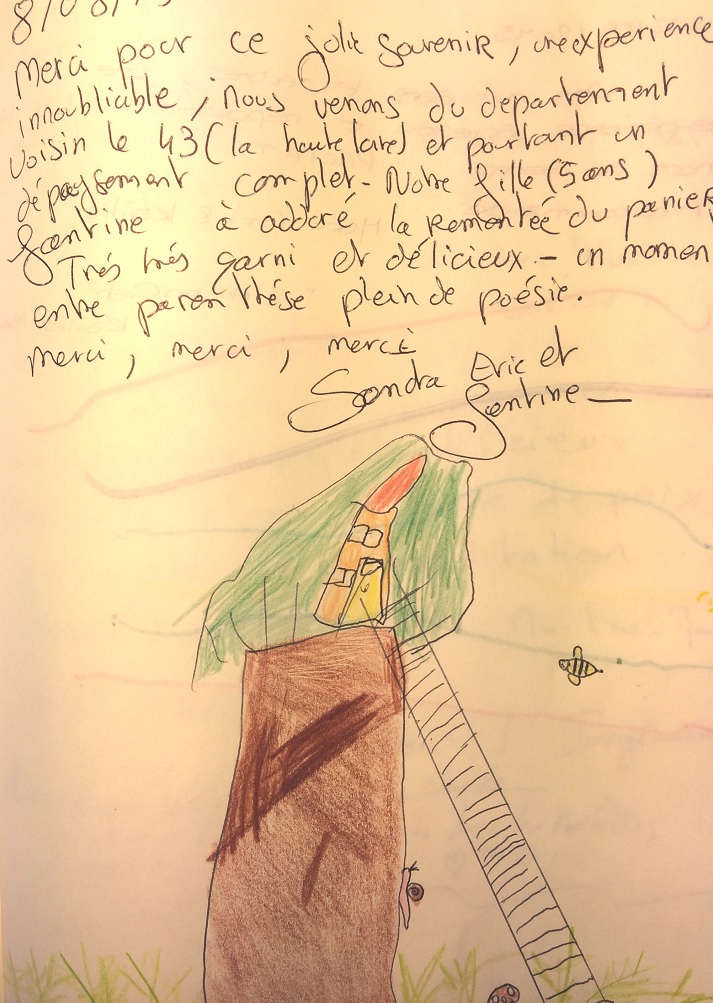 8/08/
Merci pour ce jolie souvenir, une experience
innoubliable, nous venons du departement
voisin le 43 (la haute loire) et pourtant un
dépaysement complet - Notre fille (5 ans)
Santine à adoré la remontée du panier
Trés trés garni et délicieux - un momen
entre paren thése plein de poésie.
merci, merci, merci
Sandra Eric et
Santine -